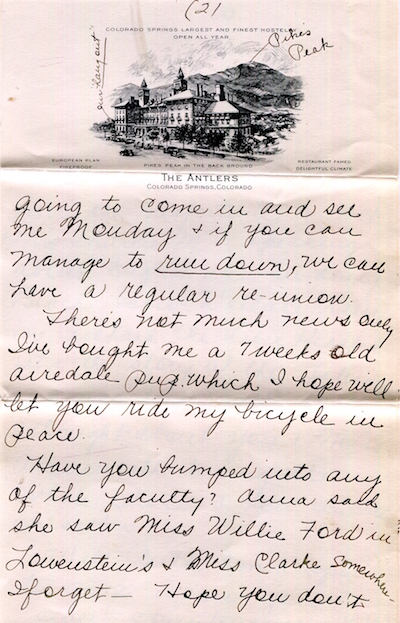 (2)
COLORADO SPRINGS LARGEST AND FINEST HOSTELRY
OPEN ALL YEAR
Pikes
Peak
EUROPEAN PLAN
FIREPROOF
PIKES PEAK IN THE BACK GROUND
RESTAURANT FAMED
DELIGHTFUL CLIMATE
THE ANTLERS
COLORADO SPRINGS, COLORADO
going to come in and see
me Monday & if you can
manage to run down, we can
have a regular re-union.
There's not much news only
I've bought me a 7 weeks old
airedale pup, which I hope will
let you ride my bicycle in
peace.
Have you bumped into any
of the faculty? Anna said
she saw Miss Willie Ford in
Lowenstein's & Miss Clarke Somewhere-
I forget — Hope you don't